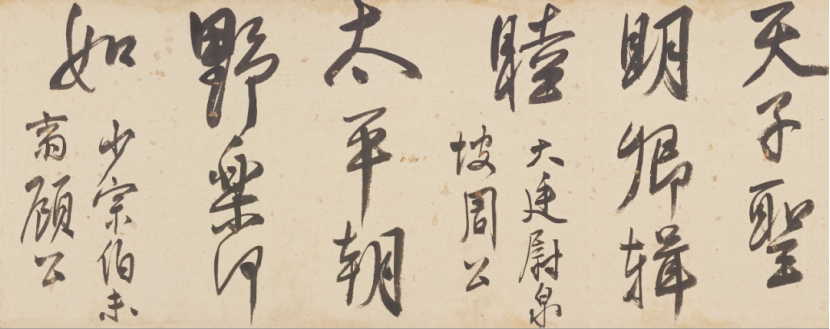 天子聖
明卿輯
睦
大廷尉泉
坡周公
太平朝
野樂何
如
少宗伯未
齋顧公